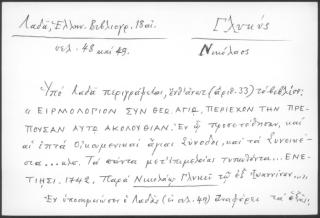 Λαδᾶ, Ἑλλην. Βιβλιογρ. 18 αἰ.
Γλυκύς
σελ. 48 καὶ 49.
Νικόλαος
Ὑπὸ Λαδᾶ περιγράφεται, (ἀριθ. 33) τὸ βιβλίον:
« ΕΙΡΜΟΛΟΓΙΟΝ ΣΥΝ ΘΕΩ ΑΓΙΩ, ΠΕΡΙΕΧΟΝ ΤΗΝ ΠΡΕ-
ΠΟΥΣΑΝ ΑΥΤΩ ΑΚΟΛΟΥΘΙΑΝ. Ἐν ᾧ προσετέθησαν, καὶ
αἱ ἑπτὰ Οἰκουμενικαὶ ἅγιαι Σύνοδοι, καὶ τὰ
κλπ. Τὰ πάντα μετ' ἐπιμελείας τυπωθέντα... ΕΝΕ-
ΤΙΗΣΙ. 1742. Παρὰ Νικολάῳ Γλυκεῖ τῷ ἐξ Ἰωαννίνων...
Ἐν ὑποσημειώσει ὁ Λαδᾶς (ἐν σελ. 49) ἀναφέρει τὰ ἑξῆς: